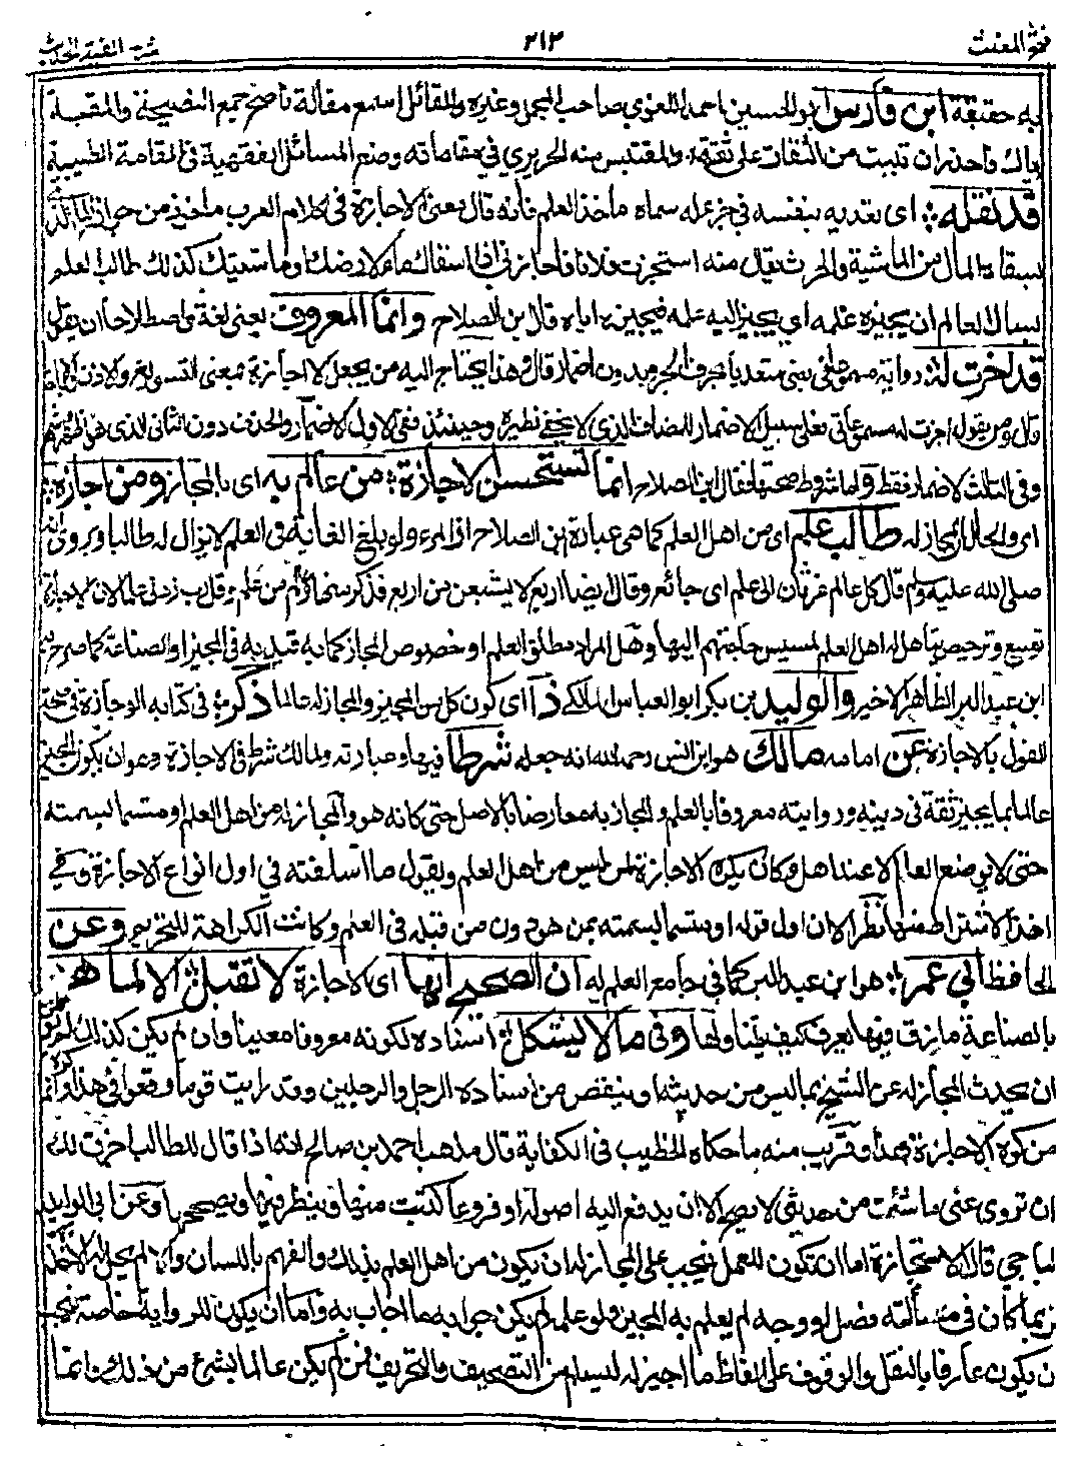 فتح المغيث
٢١٣
شرح الفية الحديث
به حقيقة ابن فارس ابو الحسين احمد اللغوي صاحب المجمل وغيره والقائل اسمع مقالة ناصح جمع النصيحة والمقة
اياك واحذر ان تبيت من الثقات على ثقة والمقتبس منه الحريري في مقاماته وضع المسائل الفقهية في المقامة الطيبية
قد نقله اي تعديه بنفسه في جزء له سماه مأخذ العلم فانه قال معنى الاجازة في كلام العرب مأخوذ من جواز الماء الذي
يسقاه المال من الماشية والحرث يقال منه استجزت فلانا فاجازني اذا اسقاك ماء لارضك او ماشيتك كذلك طالب العلم
يسأل العالم ان يجيزه علمه اي يجيز اليه علمه فيجيزه اياه قال ابن الصلاح وانما المعروف يعني لغة واصطلاحا ان يقول
قد اجزت له رواية مسموعاتي يعني متعديا بحرف الجر بدون اضمار قال وهذا يحتاج اليه من يجعل الاجازة بمعنى التسويغ والاذن والاباحة
قال ومن يقول اجزت له مسموعاتي فعلى سبيل الاضمار للمضاف الذي لا يخفى نظيره وحينئذ ففي الاول الاضمار والحذف دون الثاني الذي هو
وفي الثالث الاضمار فقط واما شروط صحتها فقال ابن الصلاح انما تستحسن الاجازة من عالم به اي بالمجاز ومن اجازه
اي والحال ان المجاز له طالب علم اي من اهل العلم كما هي عبارة ابن الصلاح اذ المرء ولو بلغ الغاية في العلم لا يزال له طالبا ويروى انه
صلى الله عليه وسلم قال كل عالم غرثان الى علم اي جائع وقال ايضا اربع لا يشبعن من اربع فذكر منها عالم من علم وقل رب زدني علما لان الاجازة
توسع وترخيص يتأهل له اهل العلم لمسيس حاجتهم اليها وهل المراد مطلق العلم او خصوص المجاز كما به قيد به في المجيز او الصناعة كما صرح به
ابن عبد البر الظاهر الاخير والوليد بن بكر ابو العباس المالكي ذا اي كون كل من المجيز والمجاز له عالما ذكر في كتابه الوجازة في صحة
القول بالاجازة عن امامه مالك هو ابن انس رحمه الله انه جعله شرطا فيها وعبارته ولمالك شرط في الاجازة وهو ان يكون المجيز
عالما بما يجيز ثقة في دينه وروايته معروفا بالعلم والمجاز به معارضا بالاصل حتى كانه هو والمجاز له من اهل العلم او متسما بسمته
حتى لا يوضع العلم الا عند اهله وكان يكره الاجازة لمن ليس من اهل العلم ويقول ما اسلفته في اول انواع الاجازة وفي
اخذ الاشتراط منها نظر الا ان اول قوله او متسما بسمته بمن هو دون من قبله في العلم وكانت الكراهة للتحريم وعن
الحافظ ابي عمر هو ابن عبد البر كما في جامع العلم له ان الصحيح انها اي الاجازة لا تقبل الا لماهر
بالصناعة حاذق فيها يعرف كيف يتناولها وفي ما لا يشكل اسناده لكونه معروفا معينا وان لم يكن كذلك لم يؤمن
ان يحدث المجاز له عن الشيخ بما ليس من حديثه او ينقص من اسناده الرجل والرجلين وقد رايت قوما وقعوا في هذا وانما
من كره الاجازة لهذا وقريب منه ما حكاه الخطيب في الكفاية قال مذهب احمد بن صالح انه اذا قال للطالب اجزت لك
ان تروي عني ما شئت من حديثي لا يصح الا ان يدفع اليه اصوله او فروعا كتبت منها وينظر فيها ويصححها وعن ابي الوليد
الباجي قال الاستجازة اما ان تكون للعمل فيجب على المجاز له ان يكون من اهل العلم بذلك والفهم باللسان والا لم يحل له الاخذ
فربما كان في مسألته فصل او وجه لم يعلم به المجيز ولو علمه لم يكن جوابه ما اجاب به واما ان يكون للرواية خاصة فيجب
ان يكون عارفا بالنقل والوقوف على الفاظ ما اجيز له ليسلم من التصحيف والتحريف فمن لم يكن عالما بشيء من ذلك وانما